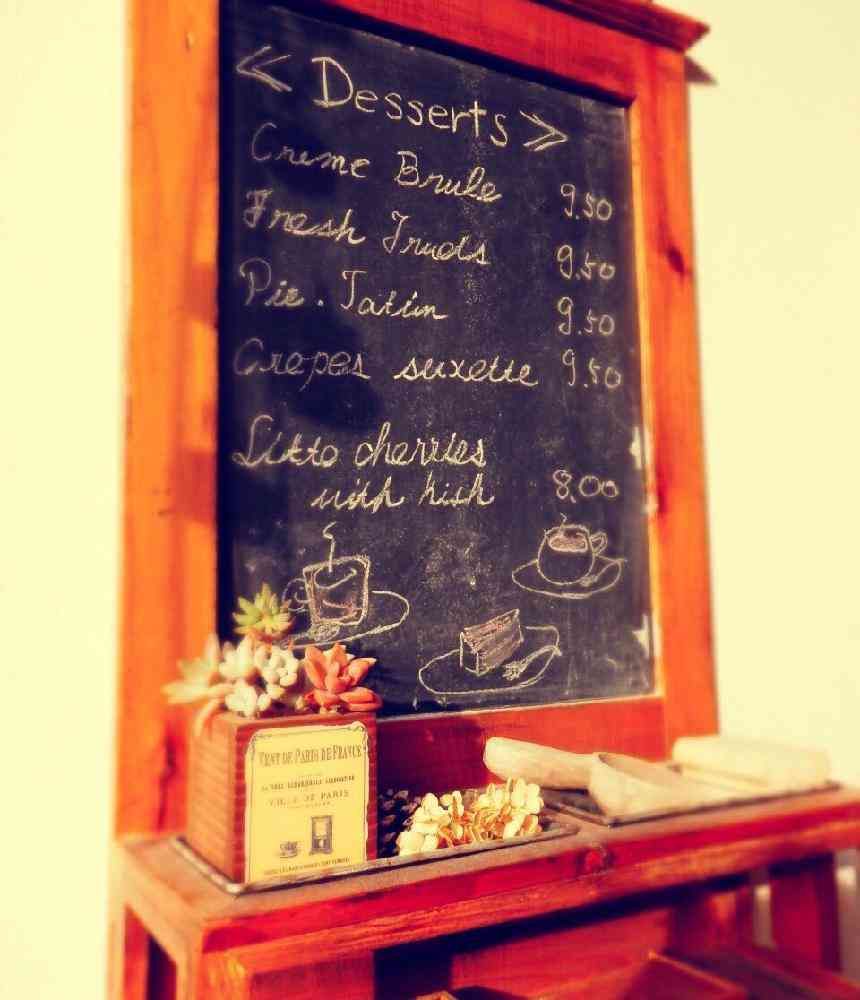 << Desserts >>
Creme Brule 9.50
Fresh Fruits 9.50
Pie. Tatin 9.50
Crepes suxette 9.50
cherries
with kish 8.00
VENT DE PARIS DE FRANCE
VILLE DE PARIS